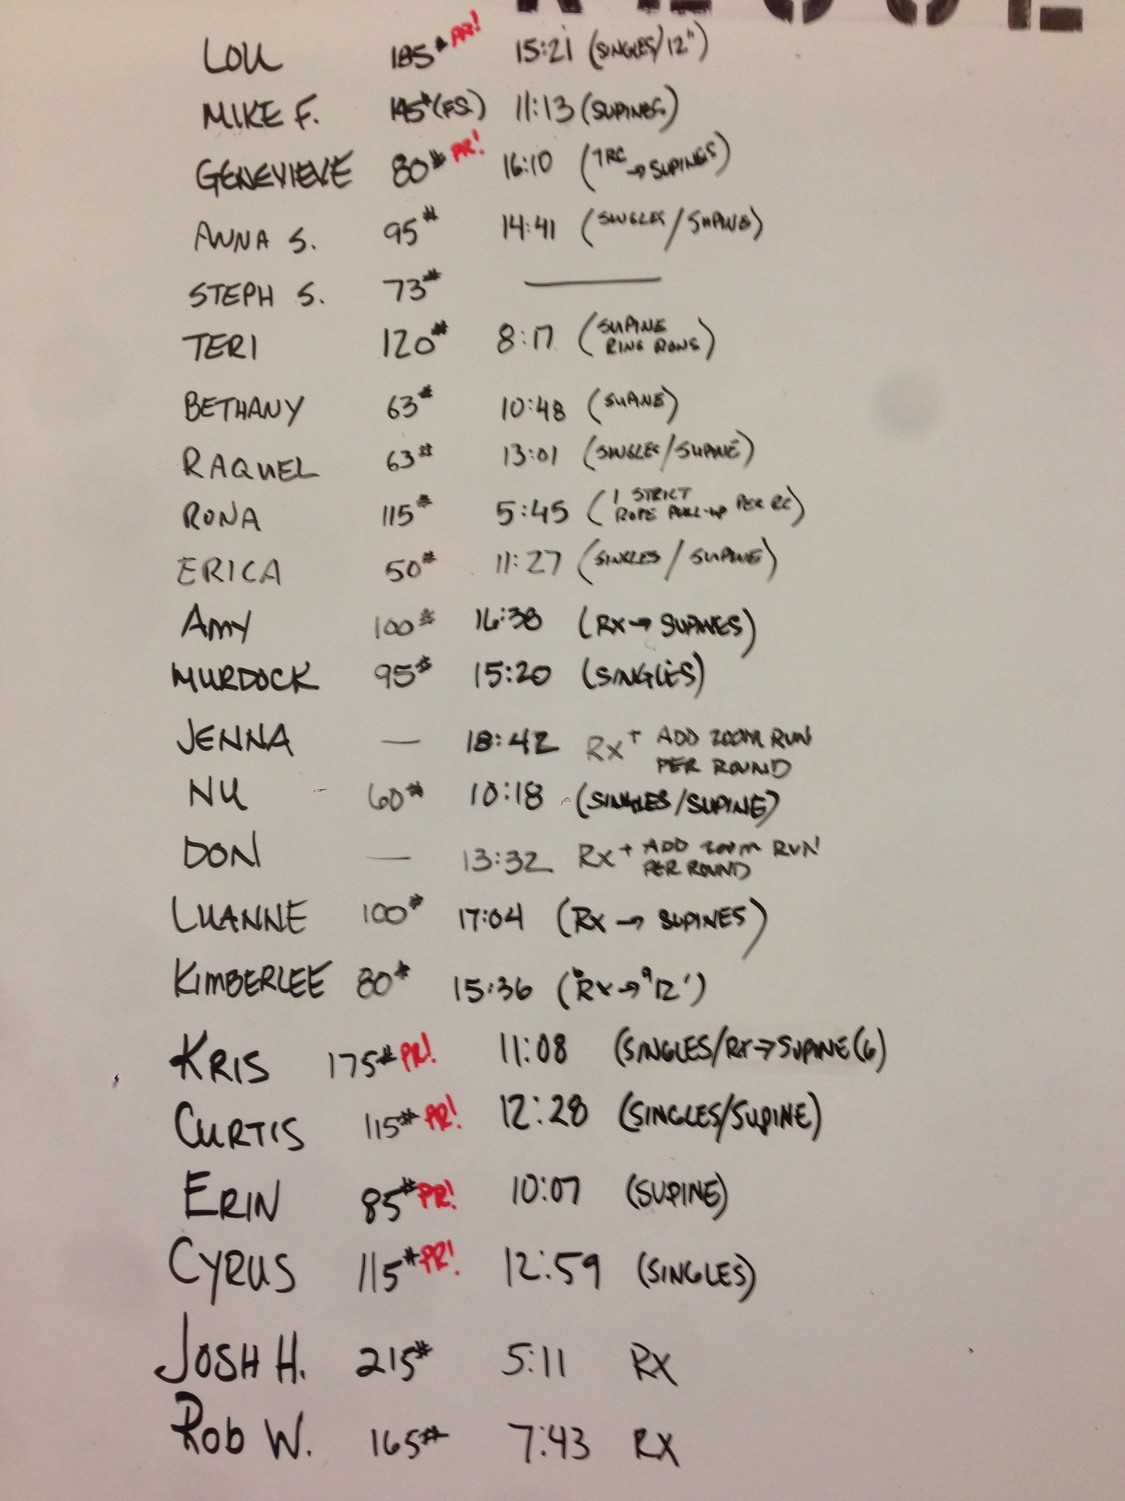 LOU 185# PR! 15:21 (SINGLES/12")
MIKE F. 145# (F.S.) 11:13 (SUPINES)
GENEVIEVE 80# PR! 16:10 (1 RC → SUPINES)
ANNA S. 95# 14:41 (SINGLES/SUPINE)
STEPH S. 73# —
TERI 120# 8:17 (SUPINE
RING ROWS)
BETHANY 63# 10:48 (SUPINE)
RAQUEL 63# 13:01 (SINGLES/SUPINE)
RONA 115# 5:45 (1 STRICT
ROPE PULL-UP PER RC)
ERICA 50# 11:27 (SINGLES/SUPINE)
AMY 100# 16:38 (RX → SUPINES)
MURDOCK 95# 15:20 (SINGLES)
JENNA — 18:42 RX+ ADD 200M RUN
PER ROUND
NU 60# 10:18 (SINGLES/SUPINE)
DON — 13:32 RX+ ADD 200M RUN
PER ROUND
LUANNE 100# 17:04 (RX → SUPINES)
KIMBERLEE 80# 15:36 (RX → 12')
KRIS 175# PR! 11:08 (SINGLES/RX → SUPINE (6)
CURTIS 115# PR! 12:28 (SINGLES/SUPINE)
ERIN 85# PR! 10:07 (SUPINE)
CYRUS 115# PR! 12:59 (SINGLES)
JOSH H. 215# 5:11 RX
ROB W. 165# 7:43 RX